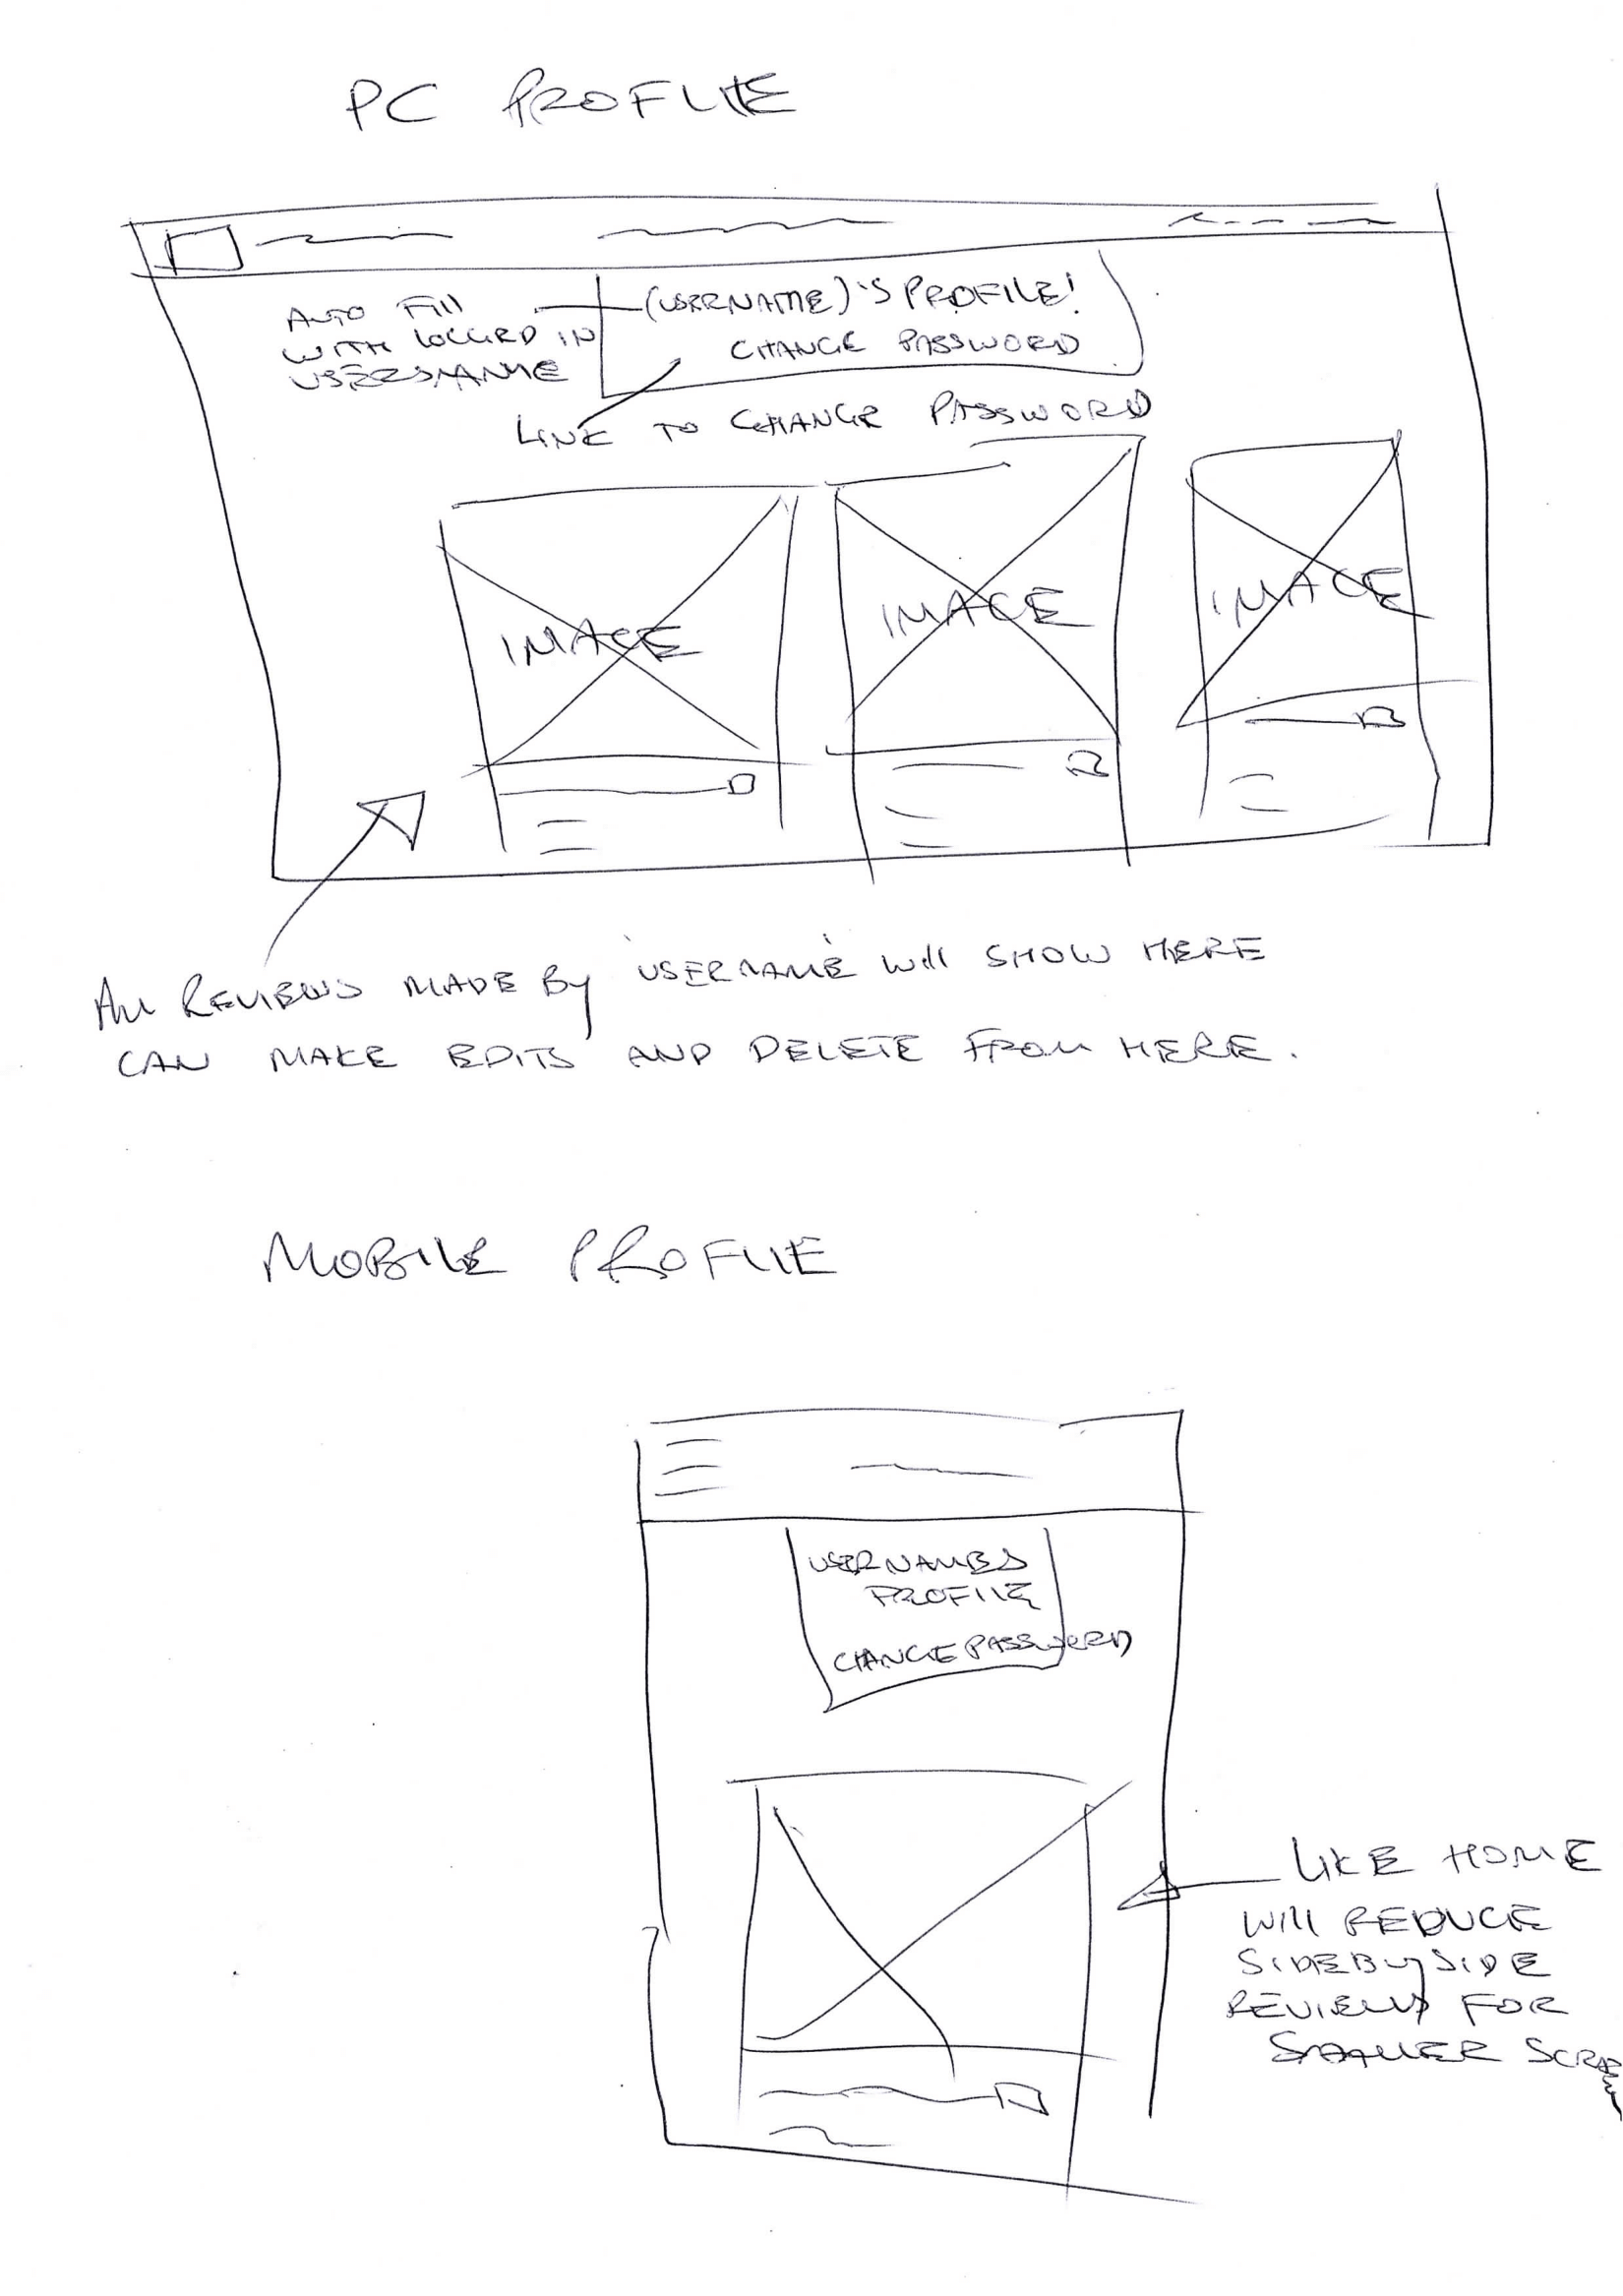 PC PROFILE
AUTO Fill
WITH LOGGED IN
USERSNAME
(USERNAME)'S PROFILE!
CHANGE PASSWORD
LINK TO CHANGE PASSWORD
IMAGE
IMAGE
IMAGE
All REVIEWS MADE By 'USERNAME' Will SHOW HERE
CAN MAKE EDITS AND DELETE FROM HERE.
MOBILE PROFILE
USERNAMES
PROFILE
CHANGE PASSWORD
LIKE HOME
Will REDUCE
SIDE By SIDE
REVIEWS FOR
SMALLER